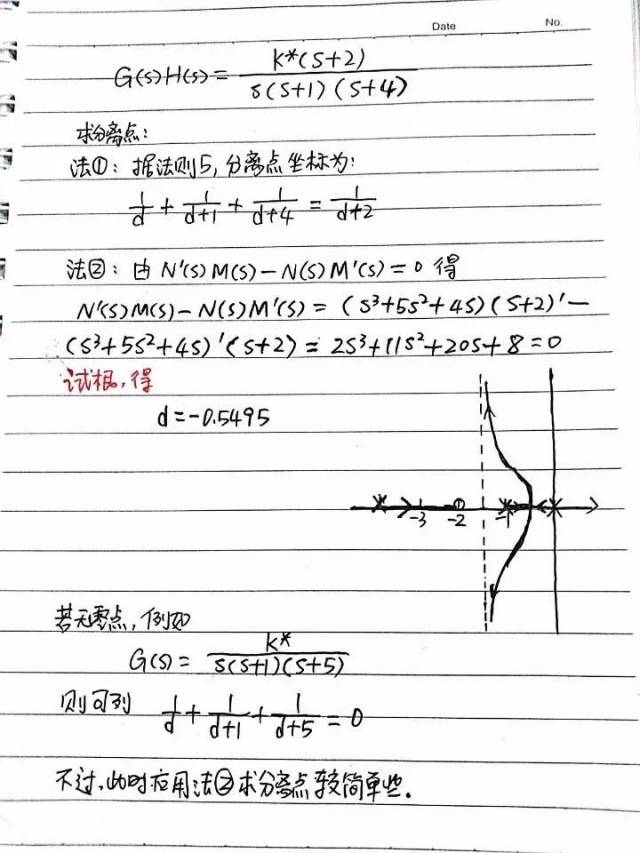 Date No.
G(s)H(s) = K*(s+2) / s(s+1)(s+4)
求分离点:
法①: 据法则5, 分离点坐标为:
1/d + 1/d+1 + 1/d+4 = 1/d+2
法②: 由 N'(s)M(s)-N(s)M'(s)=0 得
N'(s)M(s)-N(s)M'(s) = (s³+5s²+4s)(s+2)'-
(s³+5s²+4s)'(s+2) = 2s³+11s²+20s+8=0
试根, 得
d=-0.5495
-3 -2 -1
若无零点, 例如
G(s) = K* / s(s+1)(s+5)
则可列 1/d + 1/d+1 + 1/d+5 = 0
不过, 此时应用法②求分离点较简单些.